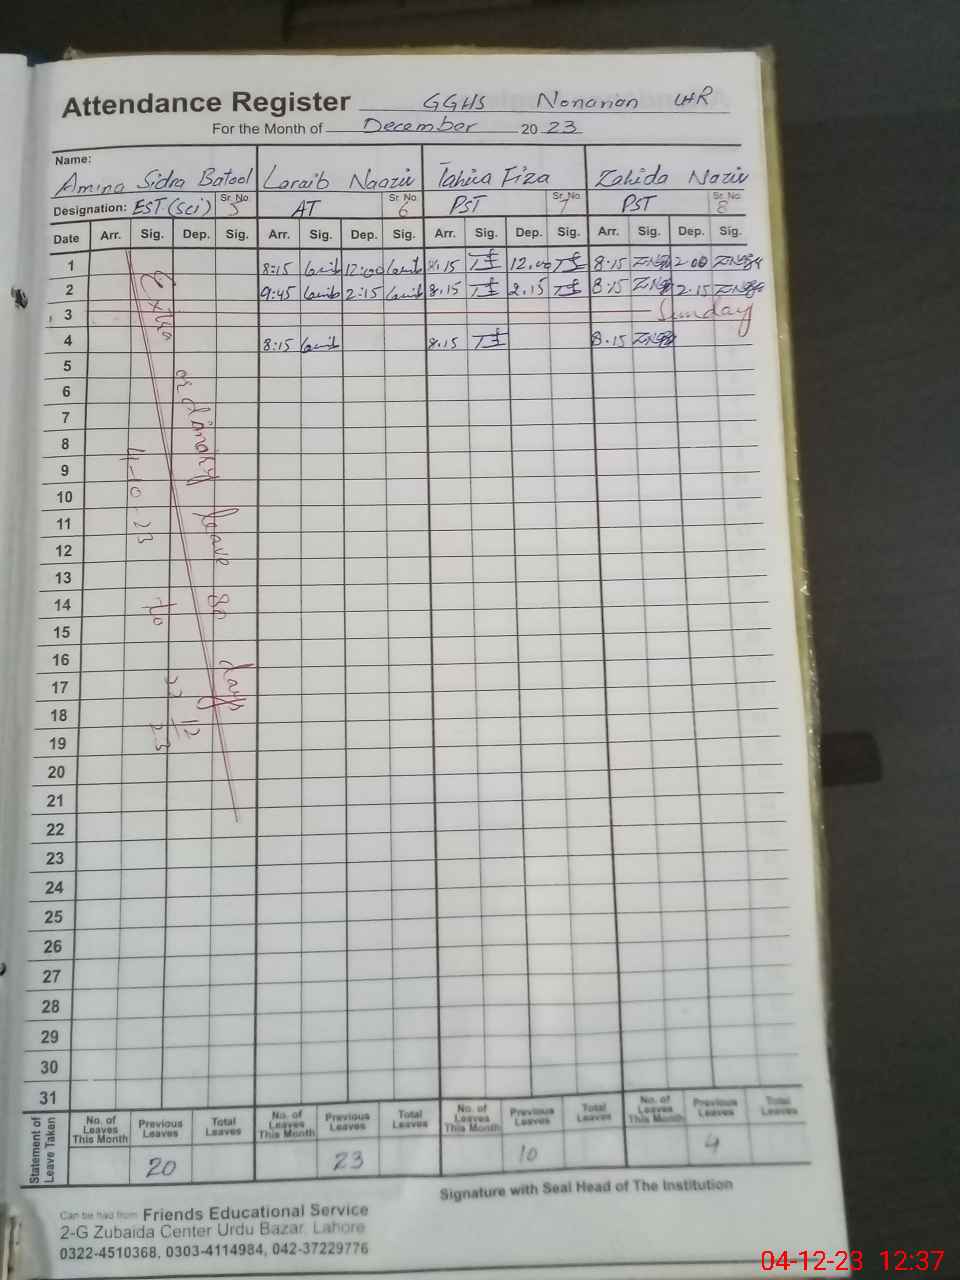 Attendance Register GGHS Nonarian LHR
For the Month of December 20 23
Name:
Amina Sidra Batool Laraib Nazir Tahira Fiza Zahida Nazir
Designation: EST (Sci) Sr. No. 5 AT Sr. No. 6 PST Sr. No. 7 PST Sr. No. 8
Date Arr. Sig. Dep. Sig. Arr. Sig. Dep. Sig. Arr. Sig. Dep. Sig. Arr. Sig. Dep. Sig.
1 8:15 12:00 8.15 12.00 8.15 2.00
2 9:45 2:15 8.15 2.15 8.15 2.15
3 Sunday
4 8:15 8.15 8.15
5
6
7
8
9
10
11
12
13
14
15
16
17
18
19
20
21
22
23
24
25
26
27
28
29
30
31
Extra ordinary leave 80 days
4-10-23 to 22 12 23
Statement of Leave Taken
No. of Leaves This Month Previous Leaves Total Leaves No. of Leaves This Month Previous Leaves Total Leaves No. of Leaves This Month Previous Leaves Total Leaves No. of Leaves This Month Previous Leaves Total Leaves
20 23 10 4
Signature with Seal Head of The Institution
Can be had from Friends Educational Service
2-G Zubaida Center Urdu Bazar, Lahore
0322-4510368, 0303-4114984, 042-37229776
04-12-23 12:37